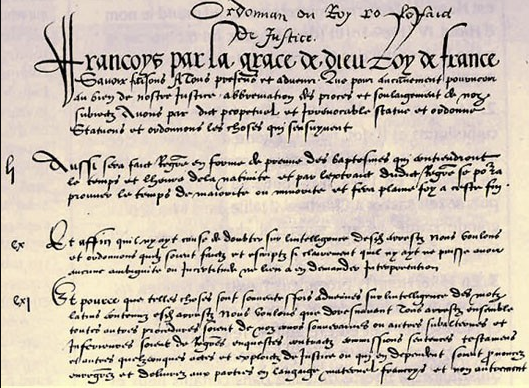 Ordonnan du Roy
De Justice.
Francoys par la grace de dieu Roy de france
Savoir faisons A Tous presens et advenir Que pour aucunement pourveoir
au bien de nostre Justice abbreviation des proces et soulagement de noz
subiectz Avons par dict perpetuel et Irrevocable statue et ordonne
Statuons et ordonnons les choses qui sensuyvent
Aussi sera faict Regre en forme de preuve des baptesmes qui contiendront
le temps et lheure dela nativite et par lextraict dudict Regre se porra
prouver le temps de maiorite ou minorite et fera plaine foy a ceste fin
cx Et affin quil ny ayt cause de doubter sur lintelligence desd arrestz Nous voulons
et ordonnons quilz soient faictz et escriptz si clairement quil ny ayt ne puisse avoir
aucune ambiguite ou Incertitude ne lieu a en demander Interpretation
cxi Et pource que telles choses sont souventesfois advenues sur lintelligence des motz
latins contenuz esd arrestz Nous voulons que doresnavant Tous arrestz ensemble
toutes autres procedures soient de noz cours souveraines ou autres subalternes et
Inferieures soient de Regres enquestes contractz commissions sentences testamens
et autres quelzconques actes et exploictz de Justice ou qui en dependent soient prononcez
enregrez et delivrez aux parties en langage maternel francoys et non autrement